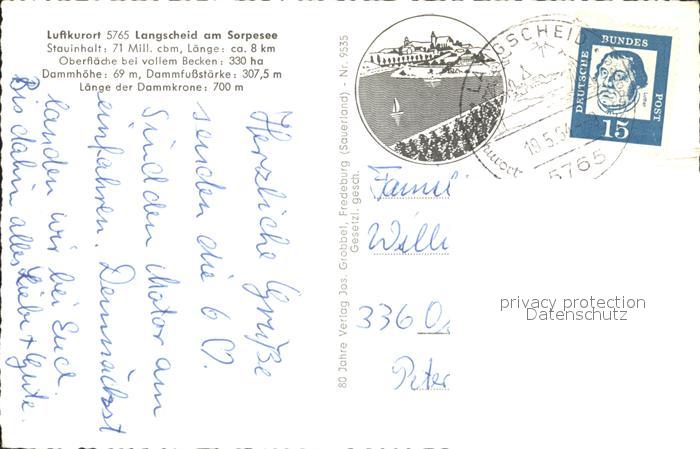 Luftkurort 5765 Langscheid am Sorpesee
Stauinhalt: 71 Mill. cbm, Länge: ca. 8 km
Oberfläche bei vollem Becken: 330 ha
Dammhöhe: 69 m, Dammfußstärke: 307,5 m
Länge der Dammkrone: 700 m
Herzliche Grüße
senden die 6 O.
Sind den Motor am
einfahren. Demnächst
landen wir bei Euch
Bis dahin alles Liebe + Gute.
80 Jahre Verlag Jos. Grobbel, Fredeburg (Sauerland) - Nr. 9535
Gesetzl. gesch.
LANGSCHEID
19.5.64
5765
DEUTSCHE BUNDES POST
Luther
15
Famil
Willi
336 O
Peter
privacy protection
Datenschutz